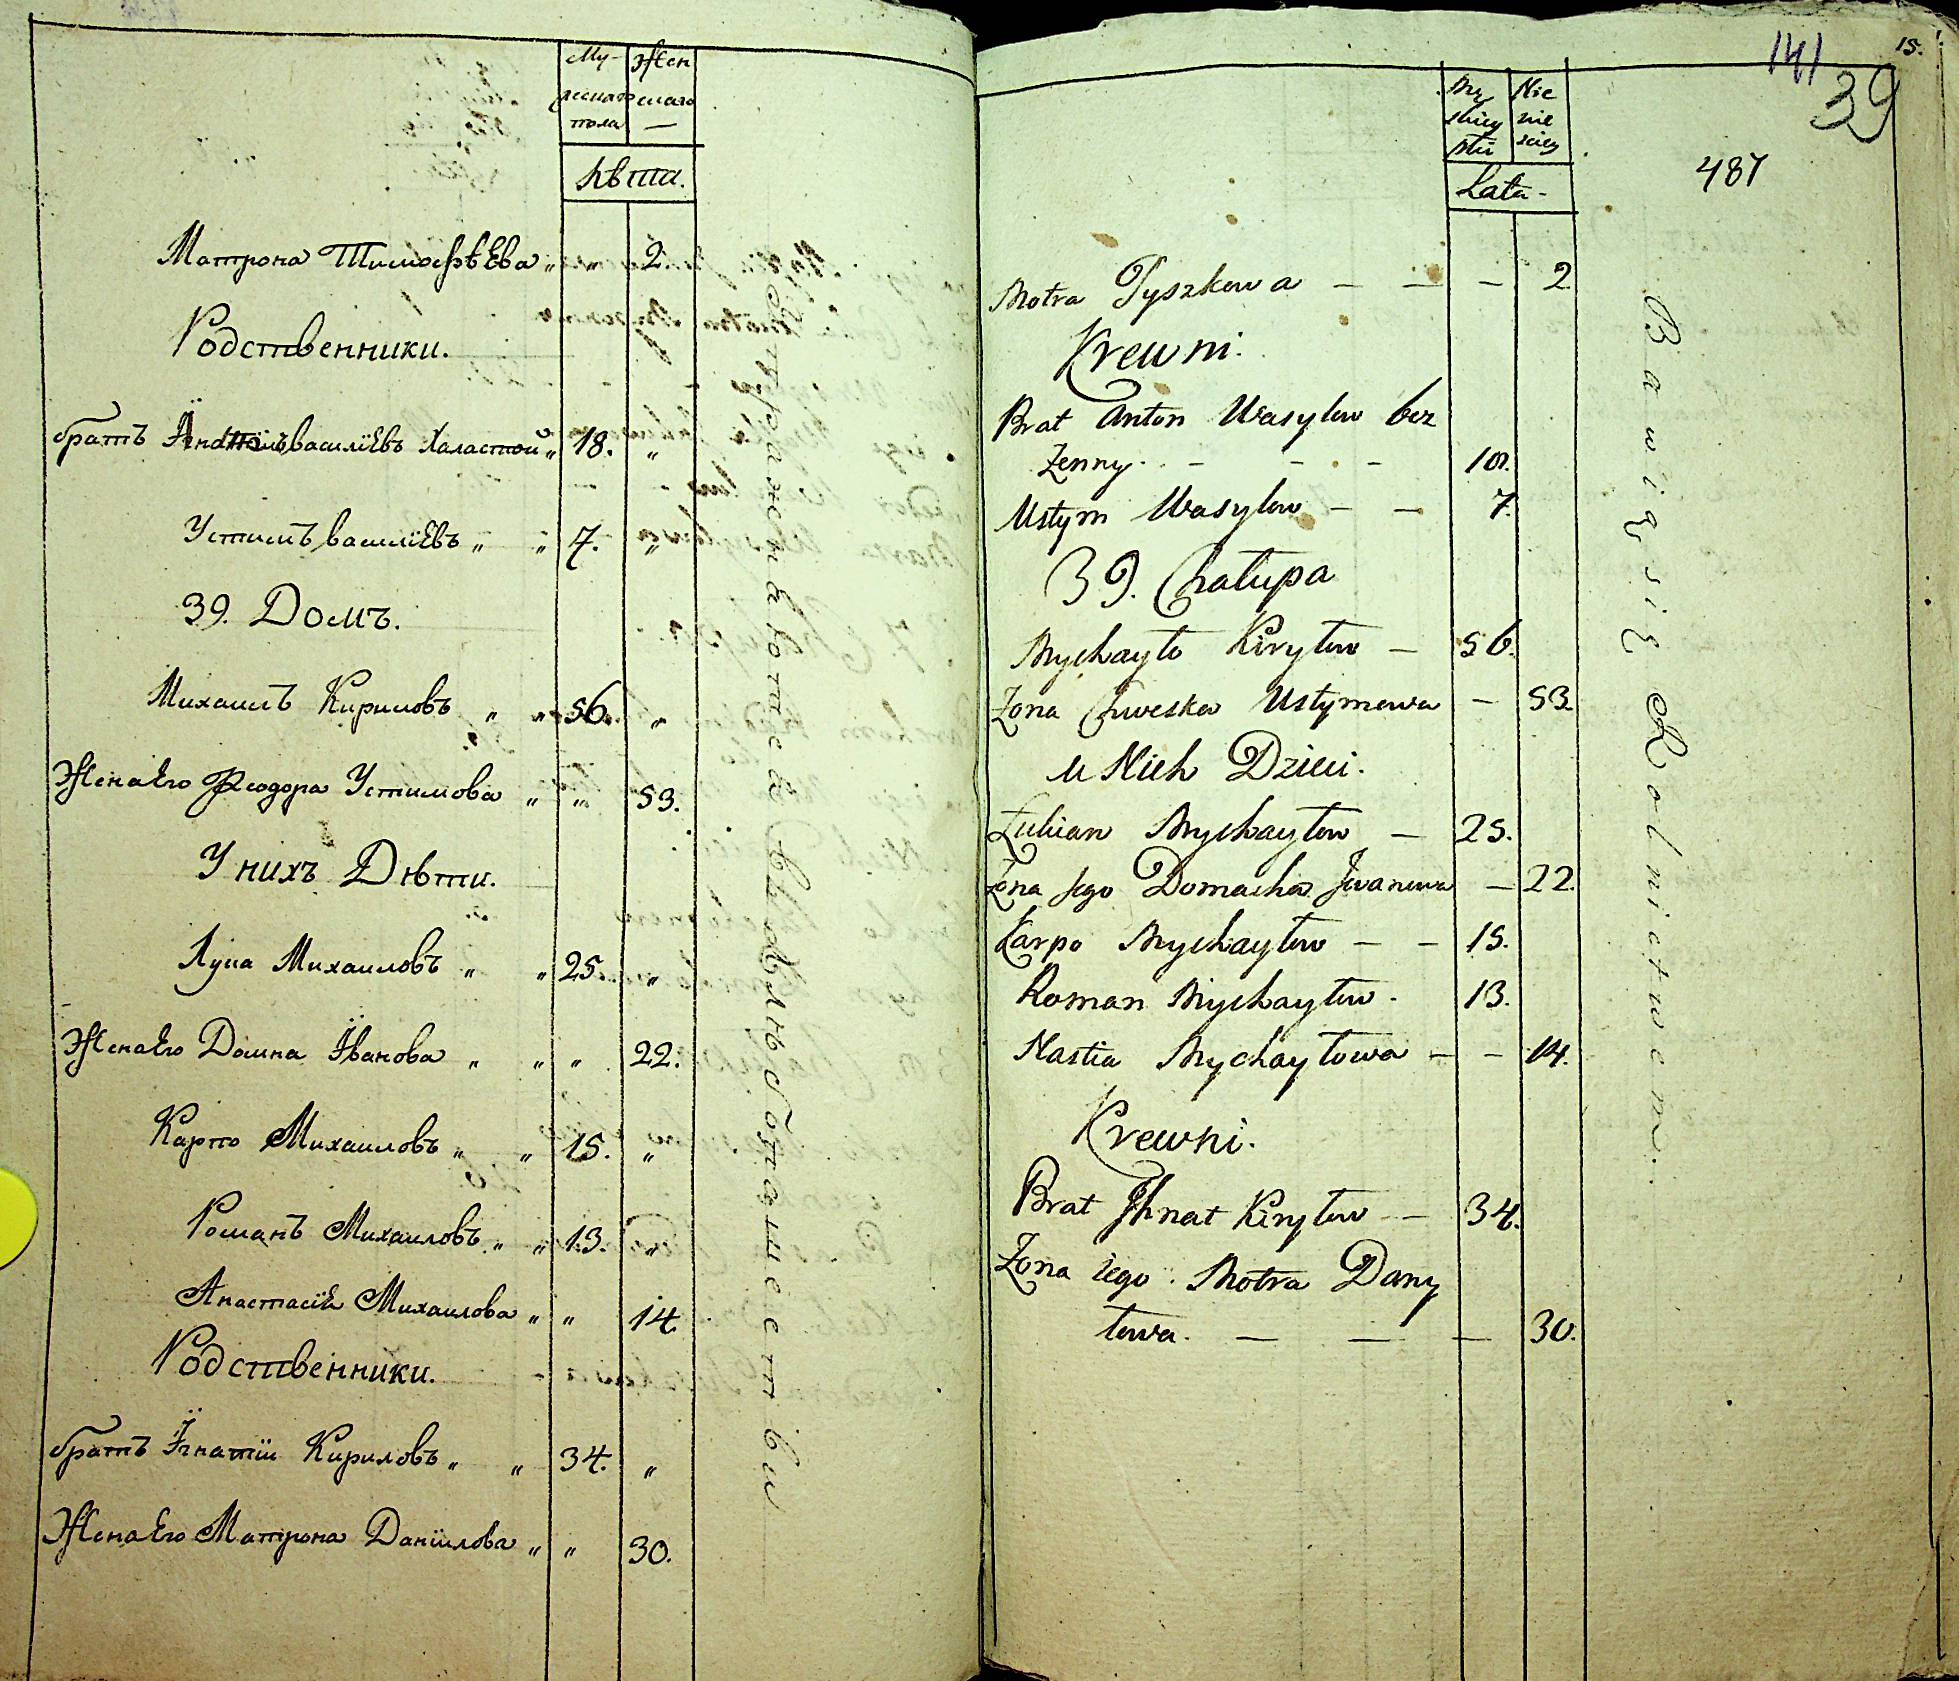 Му- Жен
ческаго скаго
пола —
Лѣта.
Матрона Тимофѣева „ „ 2.
Родственники.
братъ Василіевъ Халастой „ 18. „
Устимъ Василіевъ „ „ 7. „
39. Домъ.
Михаилъ Кириловъ „ „ 56. „
Жена Его Феодора Устимова „ „ 53.
У нихъ Дѣти.
Лука Михаиловъ „ „ 25. „
Жена Его Домна Іванова „ „ „ 22.
Карпо Михаиловъ „ „ 15. „
Романъ Михаиловъ „ „ 13. „
Анастасіѣ Михаилова „ „ 14
Родственники.
братъ Ігнатіи Кириловъ „ „ 34. „
Жена Его Матрона Даніилова „ „ 30.
Упражняются в Хлѣбопашестви
15.
141
39
487
Mę Nie
skiey wie
płci sciey
Lata-
Motra Tyszkowa — — — 2
Krewni.
Brat Anton Wasylow bez
Żenny. - - - 18.
Ustym Wasylow — — 7.
39. Chałupa
Mychayło Kiryłow — 56.
Żona Chweska Ustymowa — 53
u Nich Dzieci.
Łukian Mychayłow — 25.
Żona Jego Domacha Jwanowa — 22.
Karpo Mychayłow — — 15.
Roman Mychayłow - 13.
Nastia Mychayłowa — — 14.
Krewni.
Brat Jhnat Kiryłow — 34.
Żona iego Motra Dany
łowa. — — — 30.
Bawią się Rolnictwem.